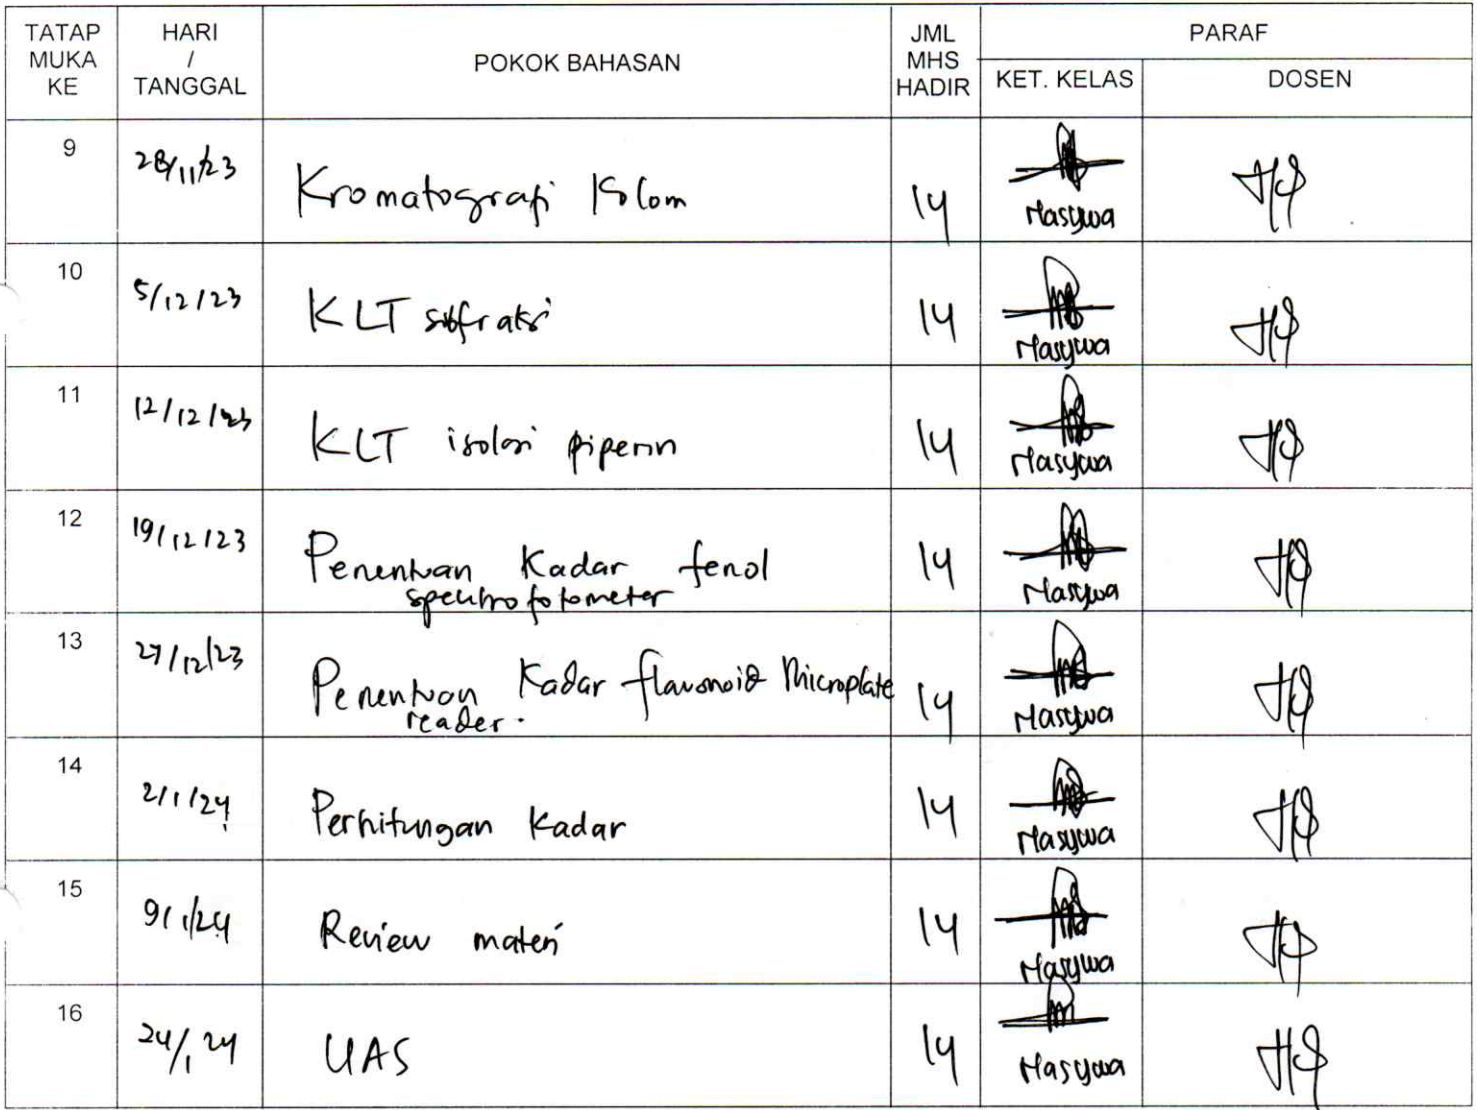 TATAP MUKA KE HARI / TANGGAL POKOK BAHASAN JML MHS HADIR PARAF
KET. KELAS DOSEN
9 28/11/23 Kromatografi Kolom 14 Hasywa
10 5/12/23 KLT subfraksi 14 Hasywa
11 12/12/23 KLT isolasi piperin 14 Hasywa
12 19/12/23 Penentuan Kadar fenol 14 Hasywa
spektrofotometer
13 27/12/23 Penentuan Kadar flavonoid Microplate 14 Hasywa
reader.
14 2/1/24 Perhitungan Kadar 14 Hasywa
15 9/1/24 Review materi 14 Hasywa
16 24/1 24 UAS 14 Hasywa